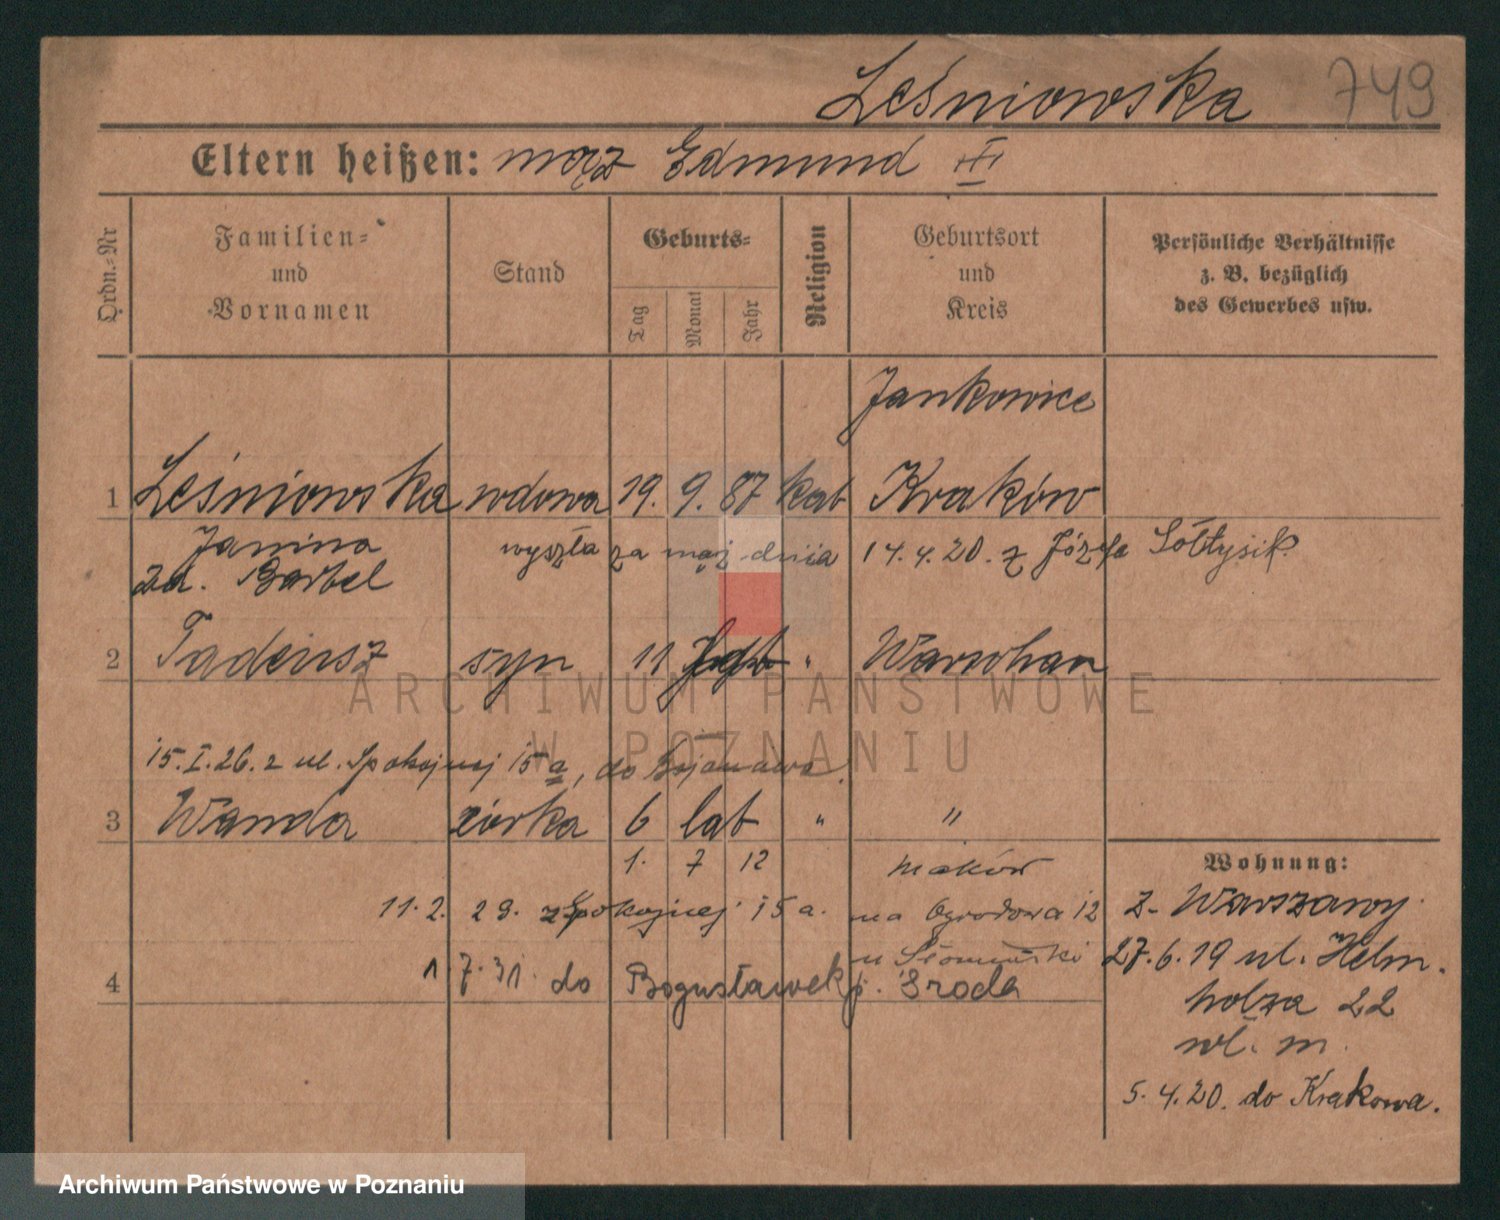 Leśniowska 749
Eltern heißen: mąż Edmund
Ordn.-Nr
Familien- und Vornamen
Stand
Geburts-
Tag
Monat
Jahr
Religion
Geburtsort und Kreis
Persönliche Verhältnisse z. B. bezüglich des Gewerbes usw.
Jankowice
1 Leśniowska wdowa 19. 9. 87 kat Kraków
Janina wyszła za mąż dnia 14.4.20. z Józefa Sołtysik
zd. Barbel
2 Tadeusz syn 11 " Warschau
ARCHIWUM PAŃSTWOWE
W POZNANIU
15.I.26. z ul. Spokojnej 15a, do Bojanowa.
3 Wanda córka 6 lat " "
1. 7 12 Maków
Wohnung:
11.2. 29. z Spokojnej 15a. na Ogrodowa 12
z Warszawy
u
27.6.19 ul. Helm-
4 1 7.31. do Bogusławek p. Środa
holza 22
wł. m.
5.4.20. do Krakowa.
Archiwum Państwowe w Poznaniu